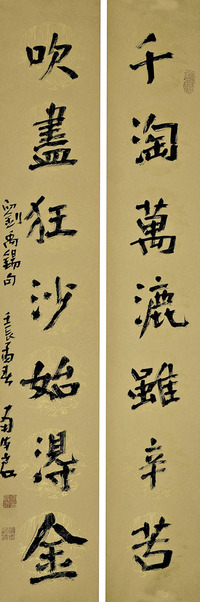 千淘萬漉雖辛苦
吹盡狂沙始得金
劉禹錫句
壬辰